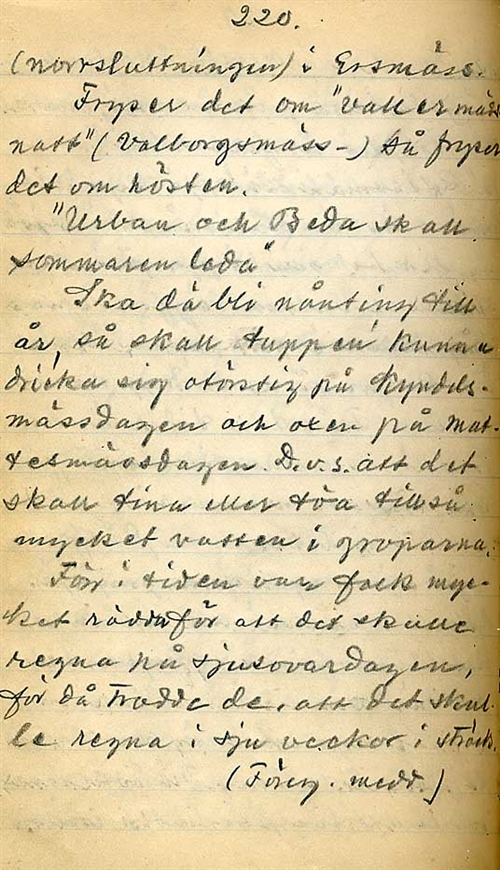 220.
(norrsluttningen) i Ersmäss.
Fryser det om "vallermäss
natt" (Valborgsmäss-) så fryser
det om hösten.
"Urban och Beda skall
sommaren leda"
Ska dä bli nånting till
år, så skall tuppen kunna
dricka sig otörstig på Kyndels-
mässdagen och oxen på Mat-
tesmässdagen. D.v.s. att det
skall tina eller töa till så
mycket vatten i groparna.
Förr i tiden var folk myc-
ket rädda för att det skulle
regna på sjusovardagen,
för då trodde de, att det skul-
le regna i sju veckor i sträck.
(Föreg. medd.)